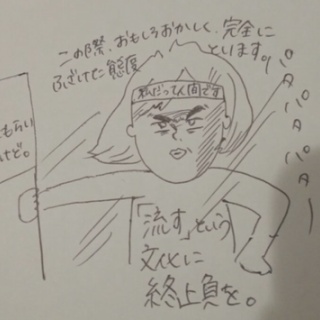 この際、おもしろおかしく、完全に
ふざけた態度
といます。
パタパタパター
私だって人間です
もらい
けど。
「流す」という
文化に
終止負を。